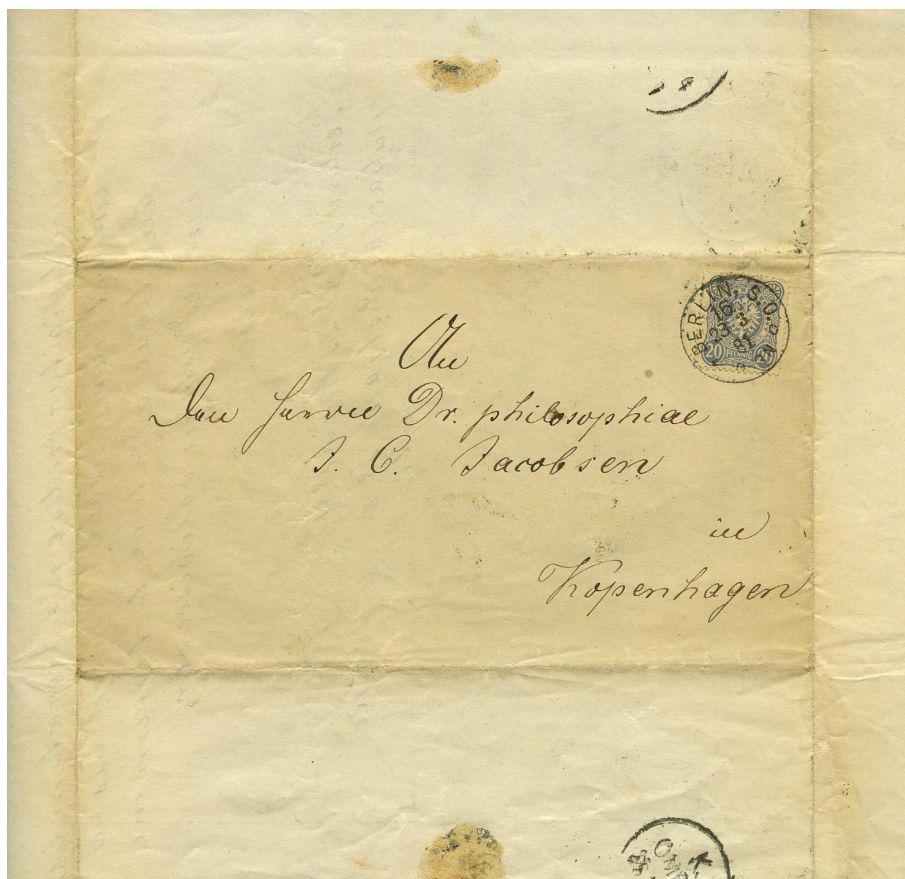 BERLIN, S.O.
16 3
23 81
20 PFENNIG 20
An
Den Herrn Dr. philosophiae
J. C. Jacobsen
in
Kopenhagen
K
OMB